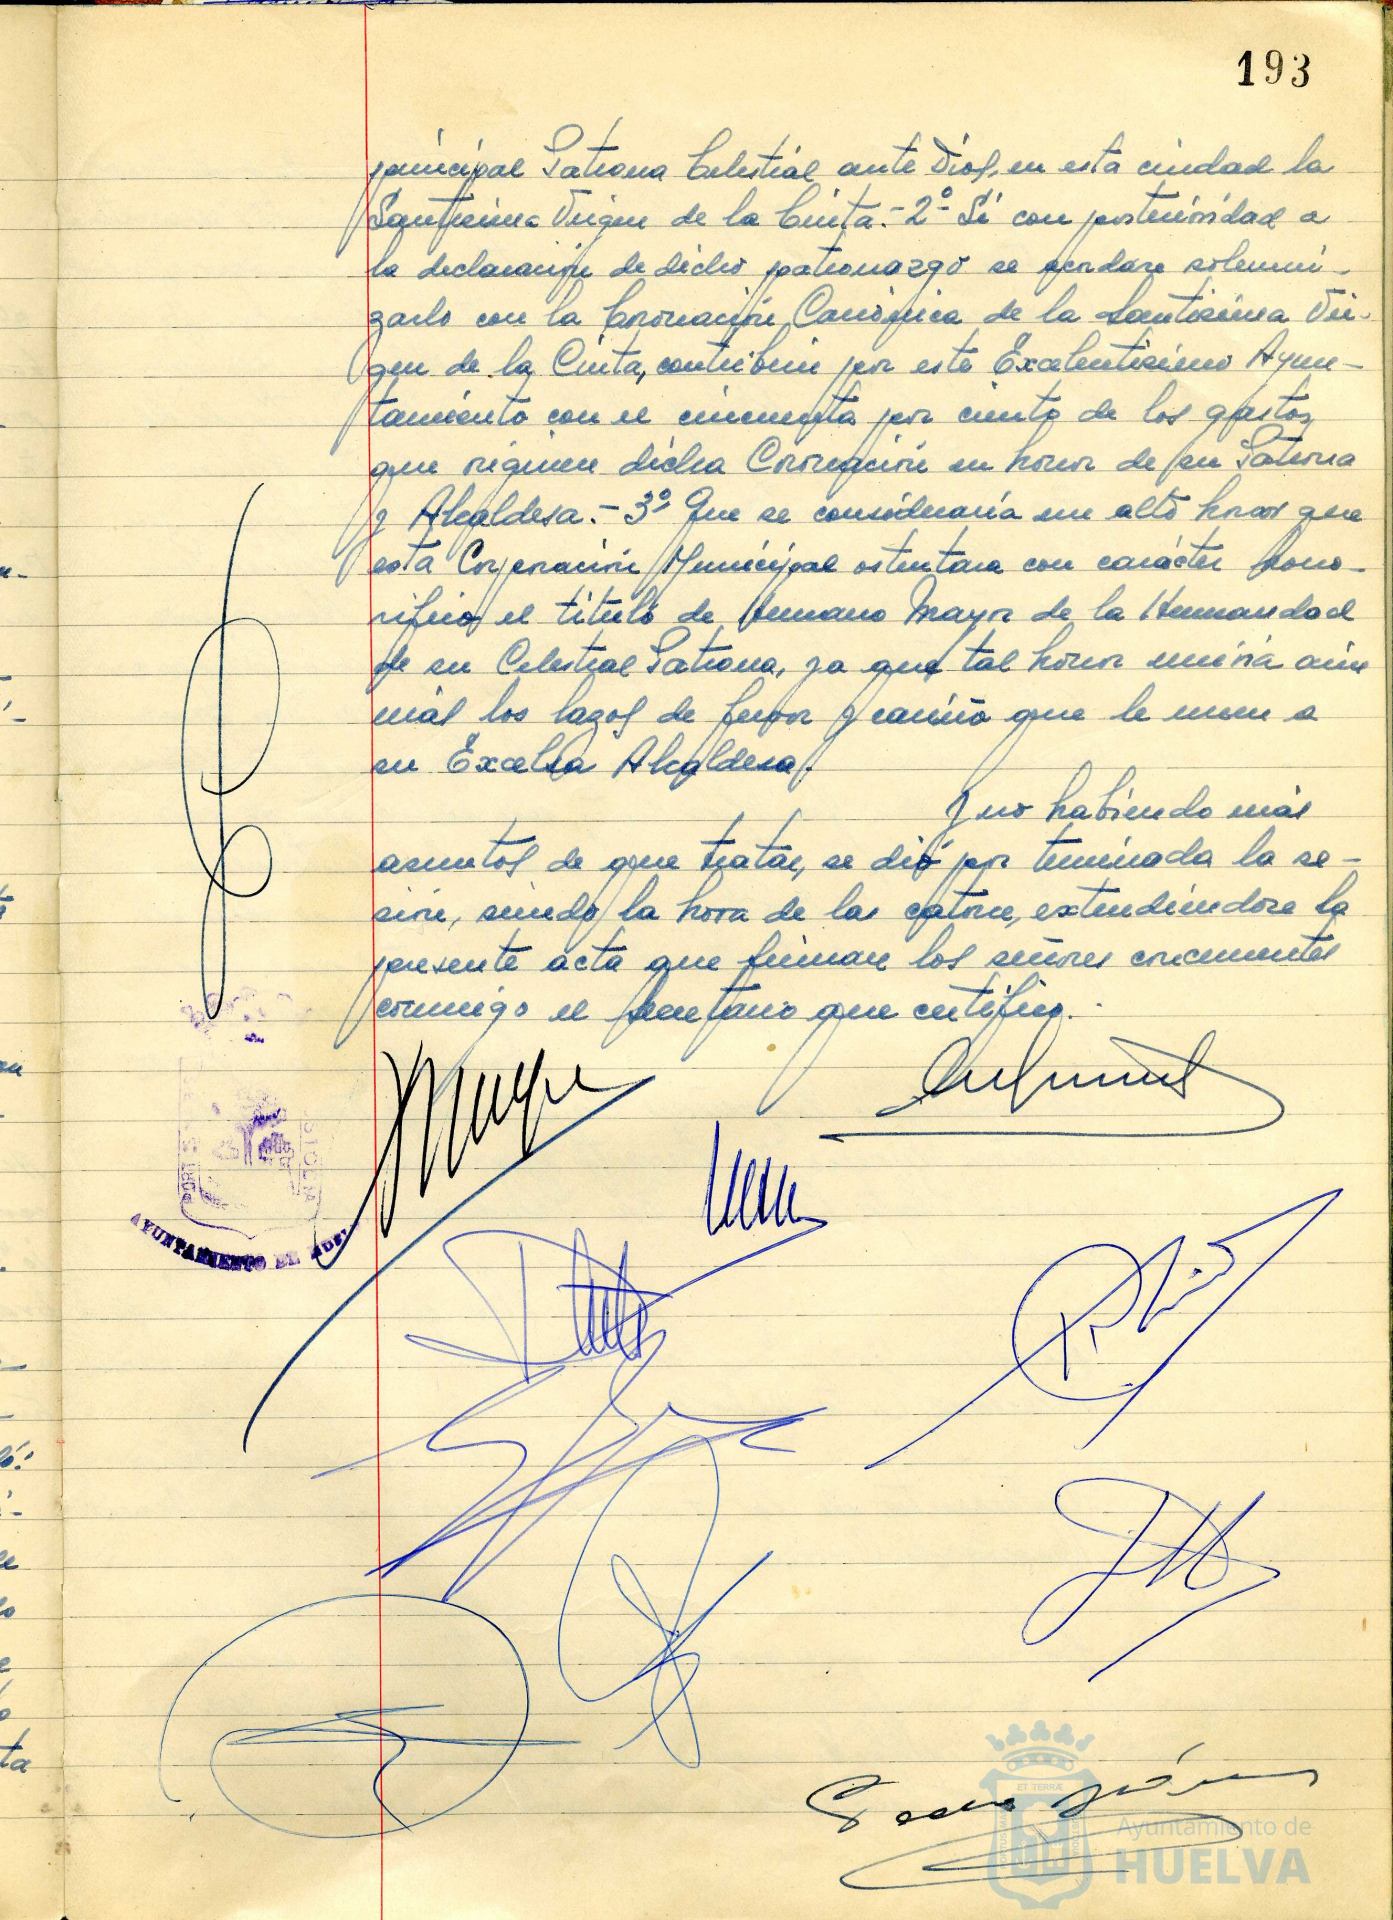 193
principal Patrona Celestial ante Dios, en esta ciudad la
Santísima Virgen de la Cinta.- 2º- Si con posterioridad a
la declaración de dicho patronazgo se acordare solemni-
zarlo con la Coronación Canónica de la Santísima Vir-
gen de la Cinta, contribuir por este Excelentísimo Ayun-
tamiento con el cincuenta por ciento de los gastos
que origine dicha Coronación en honor de su Patrona
y Alcaldesa.- 3º Que se consideraría un alto honor que
esta Corporación Municipal ostentara con carácter hono-
rífico el título de Hermano Mayor de la Hermandad
de su Celestial Patrona, ya que tal honor uniría aún
más los lazos de fervor y cariño que le unen a
su Excelsa Alcaldesa.
Y no habiendo más
asuntos de que tratar, se dió por terminada la se-
sión, siendo la hora de las catorce, extendiéndose la
presente acta que firman los señores concurrentes
conmigo el Secretario que certifico.-
AYUNTAMIENTO DE
ET TERRÆ
Ayuntamiento de
HUELVA